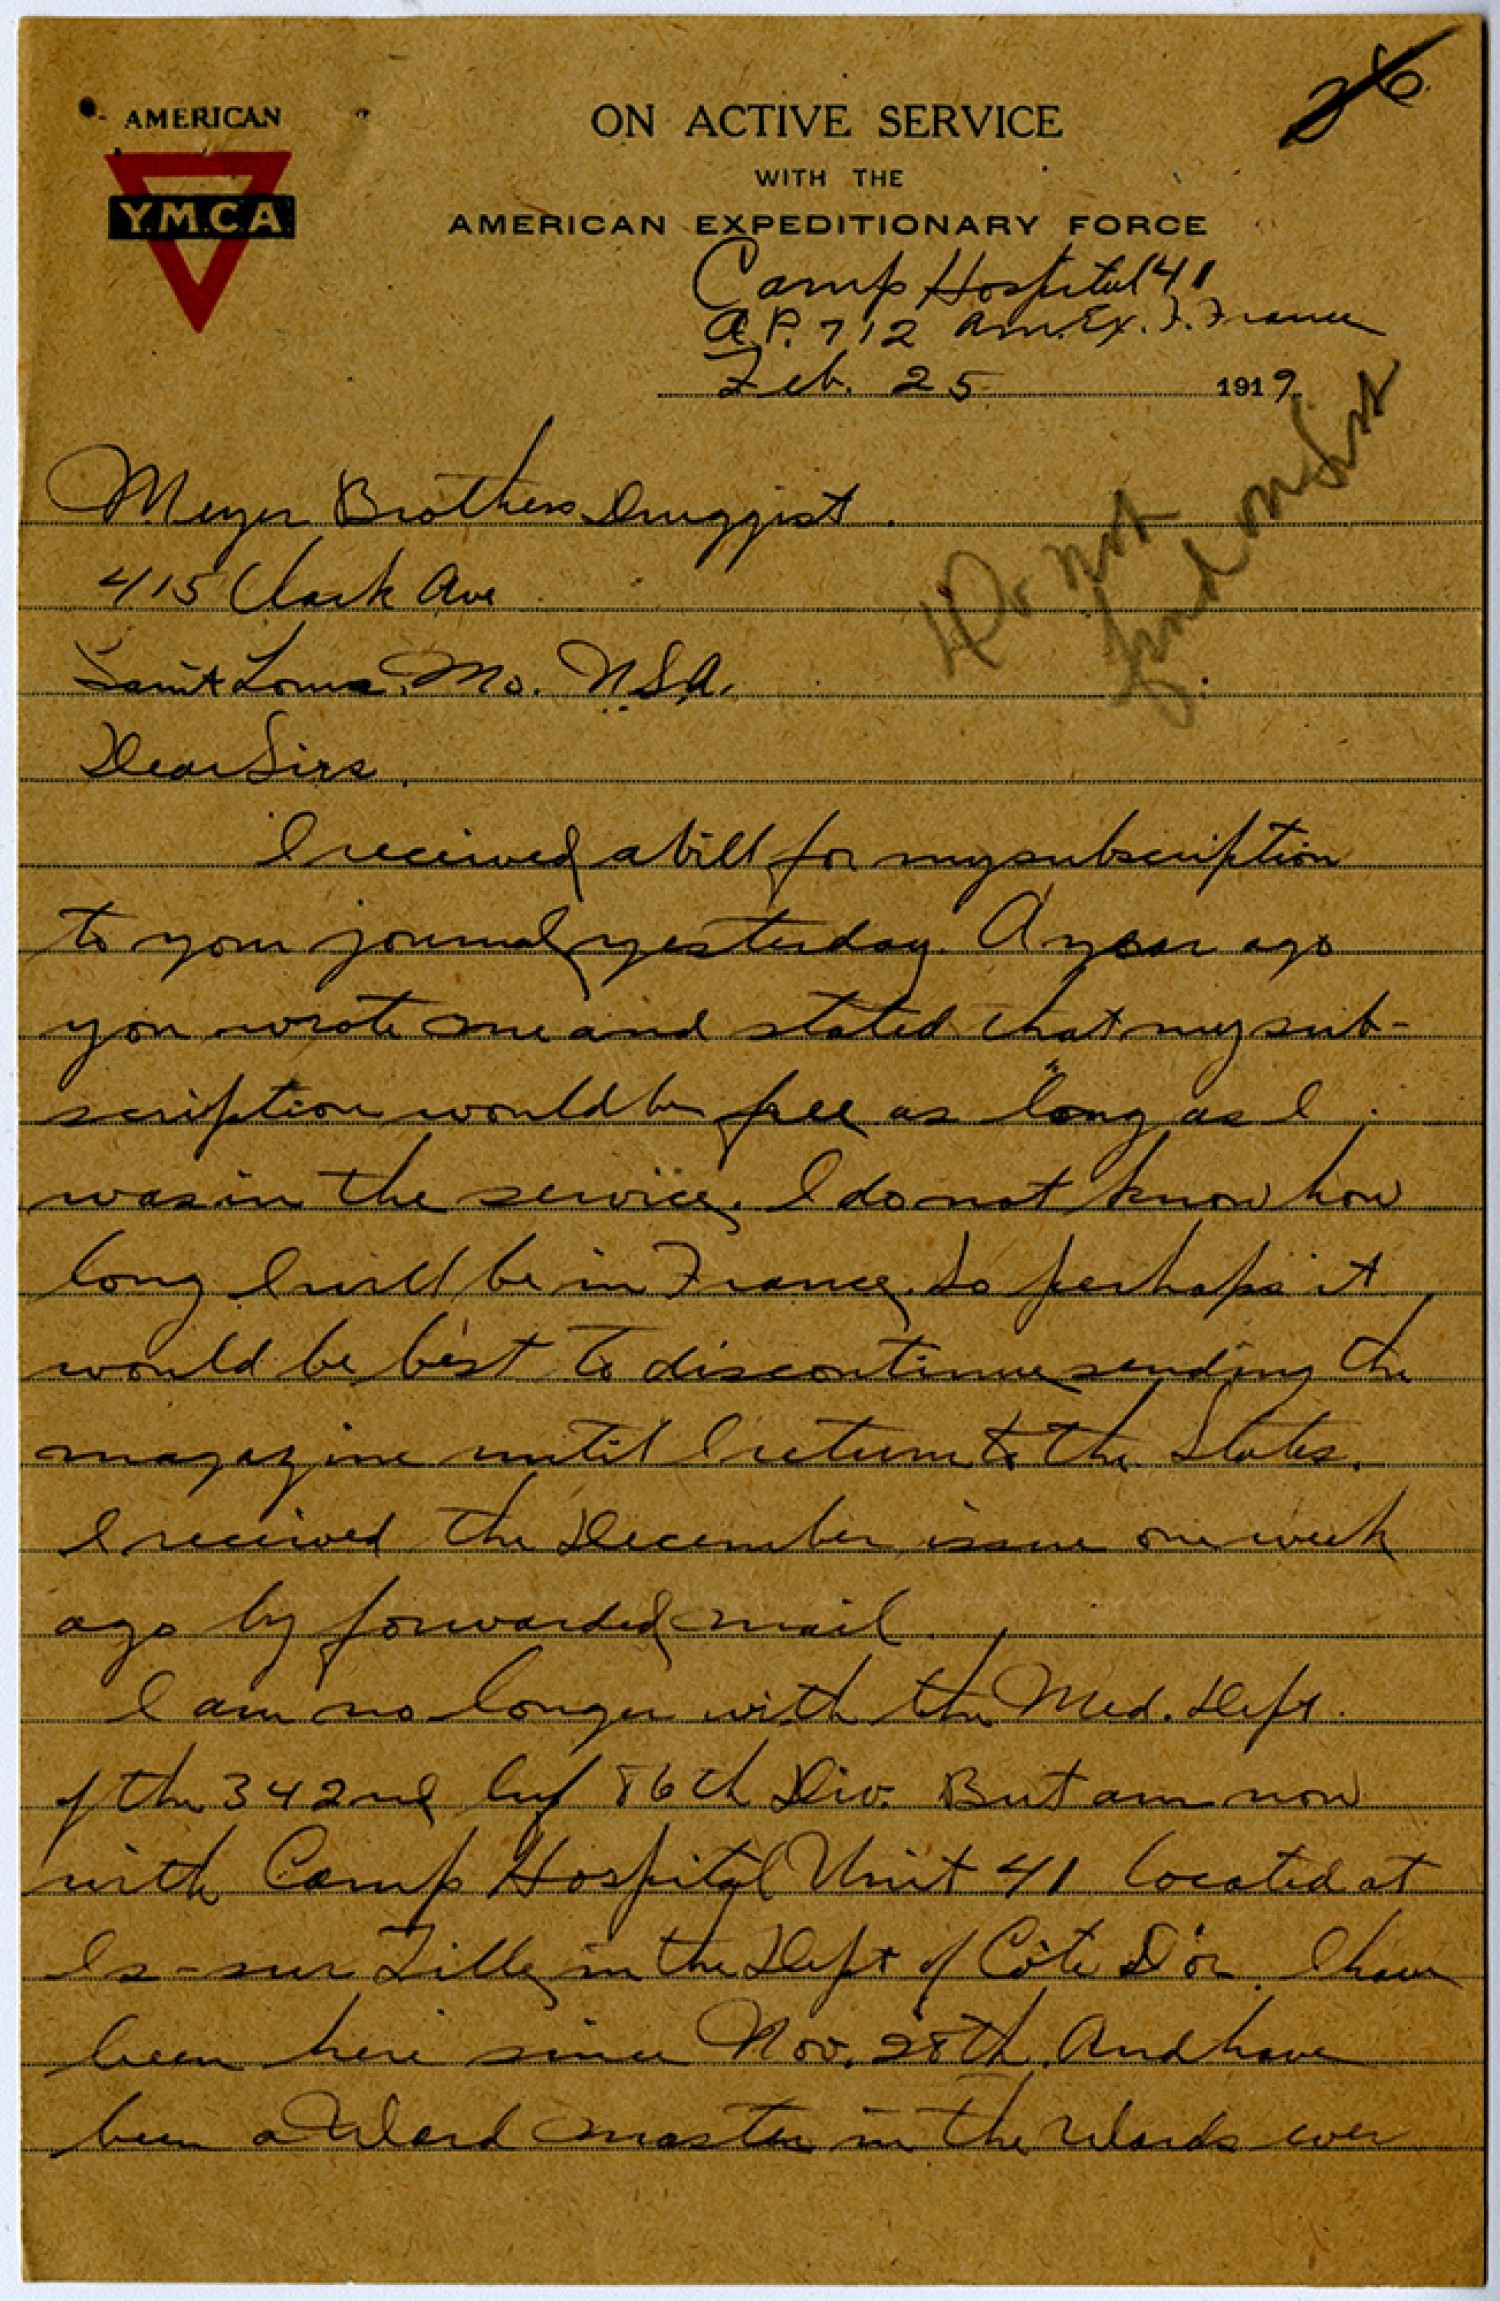 26
AMERICAN
Y.M.C.A.
ON ACTIVE SERVICE
WITH THE
AMERICAN EXPEDITIONARY FORCE
Camp Hospital 41
A.P. 712 Am. Ex. F. France
Feb. 25 1919
Do not
find on list
Meyer Brothers Druggist.
415 Clark Ave
Saint Louis, Mo. U.S.A.
Dear Sirs.
I received a bill for my subscription
to your journal yesterday. A year ago
you wrote me and stated that my sub-
scription would be free as long as I
was in the service. I do not know how
long I will be in France, so perhaps it
would be best to discontinue sending the
magazine until I return to the States.
I received the December issue one week
ago by forwarded mail.
I am no longer with the Med. Dept.
of the 342nd Inf 86th Div. But am now
with Camp Hospital Unit 41 located at
Is-sur Tille, in the Dept of Côte D'or. I have
been here since Nov. 28th. And have
been a Ward master in the Wards ever